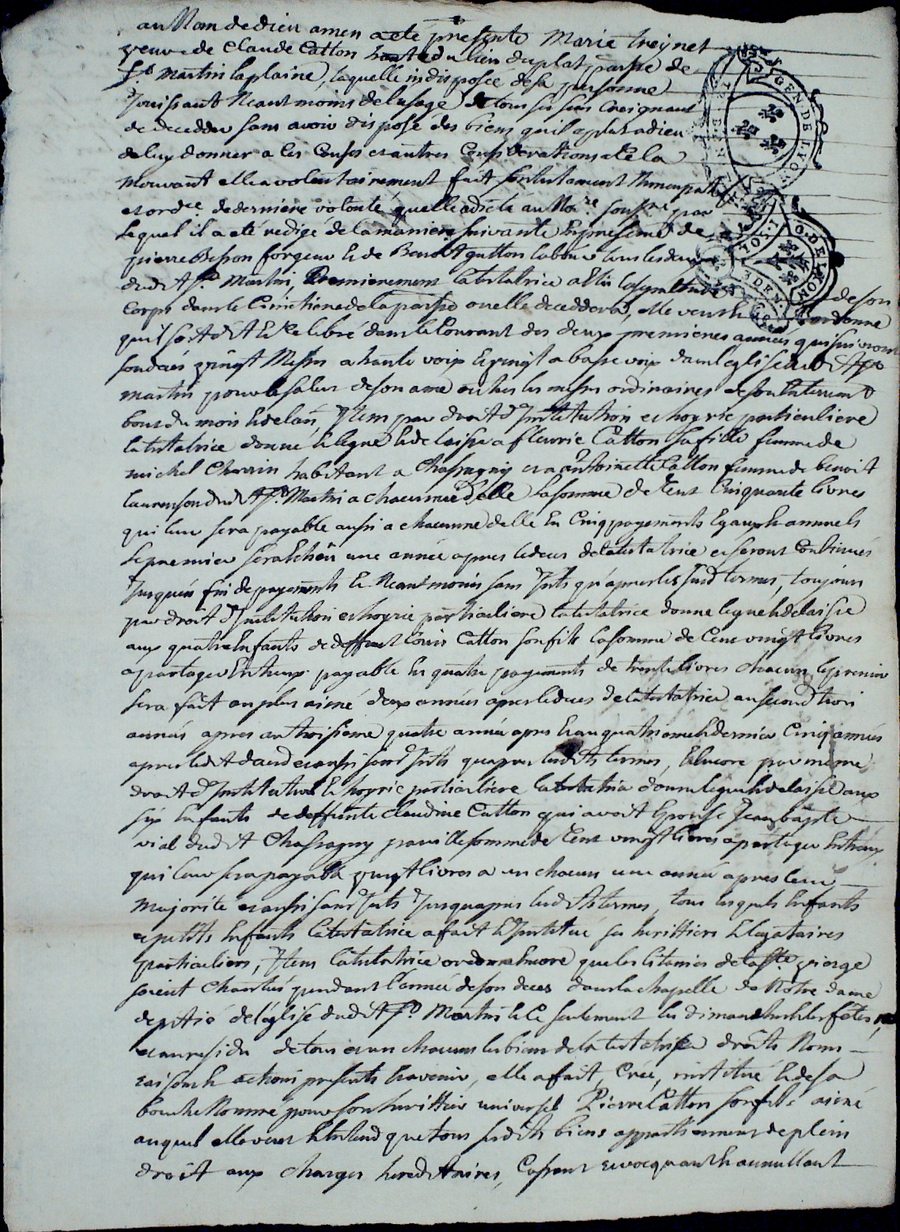 au Nom de dieu amen a eté presente Marie treynet
veuve de Claude Catton du lieu du plat parsse de
St martin laplaine, laquelle indisposée de sa personne
Jouissant Neantmoins de lusage de tous ses sens Craignant
de deceder sans avoir disposé des biens quil a plut a dieu
de luy donner a les Causes et autres Considerations a Ce la
Mouvant elle a volontairement fait son testament Nuncupatif
et ordce. de derniere volonté quelle a dicté au Nore. sousné. par
lequel il a eté redigé de la maniere suivante En presence de
pierre Besson forgeur et de Benoit gutton laboureur tous les deux
dudit St. Martin, Premierement la testatrice a Elu la sepulture de son
Corps dans le Cimetiere de la parsse ou elle decedera, elle veut et ordonne
quil soit dit et Celebré dans le Courant des deux premieres années qui suivront
son deces vingt Messes a haute voix et vingt a basse voix dans leglise dudit St.
martin pour le salut de son ame outre les messes ordinaires de son Enterrement
bout du mois et de lan, Item par droit d'Institution et hoyrie particuliere
la testatrice donne et legue et delaisse a fleurie Catton sa fille femme de
michel habitant a Chassagny et a antoinette Catton femme de benoit
laurenson dudit St. Martin a chacunne delle la somme de Cent Cinquante livres
qui leur sera payable aussi a chacunne delle En Cinq payements Egaux et annuels
le premier sera Echeu une année apres le deces de la testatrice et seront Continués
Jusquen fin de payements et Neantmoins sans Jnts qu'apres lesd. termes, toujours
par droit d'Institution et hoyrie particuliere la testatrice donne legue et delaisse
aux quatre Enfants de deffunt Louis Catton son fils la somme de Cent vingt livres
a partager Entreux payable En quatre payements de trente livres chacun le premier
sera fait au plus ainé deux années apres le deces de la testatrice au second trois
années apres au troisieme quatre années apres et au quatrieme et dernier Cinq années
apres ledit deces et aussi sans Jnts quapres lesdits termes, Encore par meme
droit d'Institution et hoyrie particuliere la testatrice donne legue et delaisse aux
six Enfants de deffunte Claudine Catton qui avoit Epousé Jean baptte
vial dudit Chassagny pareille somme de Cent vingt livres a partager Entreux
qui leur sera payable vingt livres a un chacun une année apres leur
Majorité et aussi sans Jnts Jusquapres lesdits termes, tous lesquels Enfants
et petits Enfants la testatrice a fait et Institué ses heritiers et legataires
particuliers, Item la testatrice ordonne Encore que les litanies de la Ste. vierge
soient Chantées pendant l'année de son deces dans la chapelle de Notre dame
de pitié de l'église dudit St. Martin et Ce seulement les dimanches et les fêtes,
et au residu de tous et un chacuns les biens de la testatrice droits Noms
raisons et actions presents et avenir, elle a fait, Creé, institué et de sa
bouche Nommé pour son heritier universel Pierre Catton son fils ainé
auquel elle veut et Entend que tous sesdits biens appartiennent de plein
droit aux charges hereditaires, Cassant revocquant et annullant
GEN. DE LYON
G. DE LYON